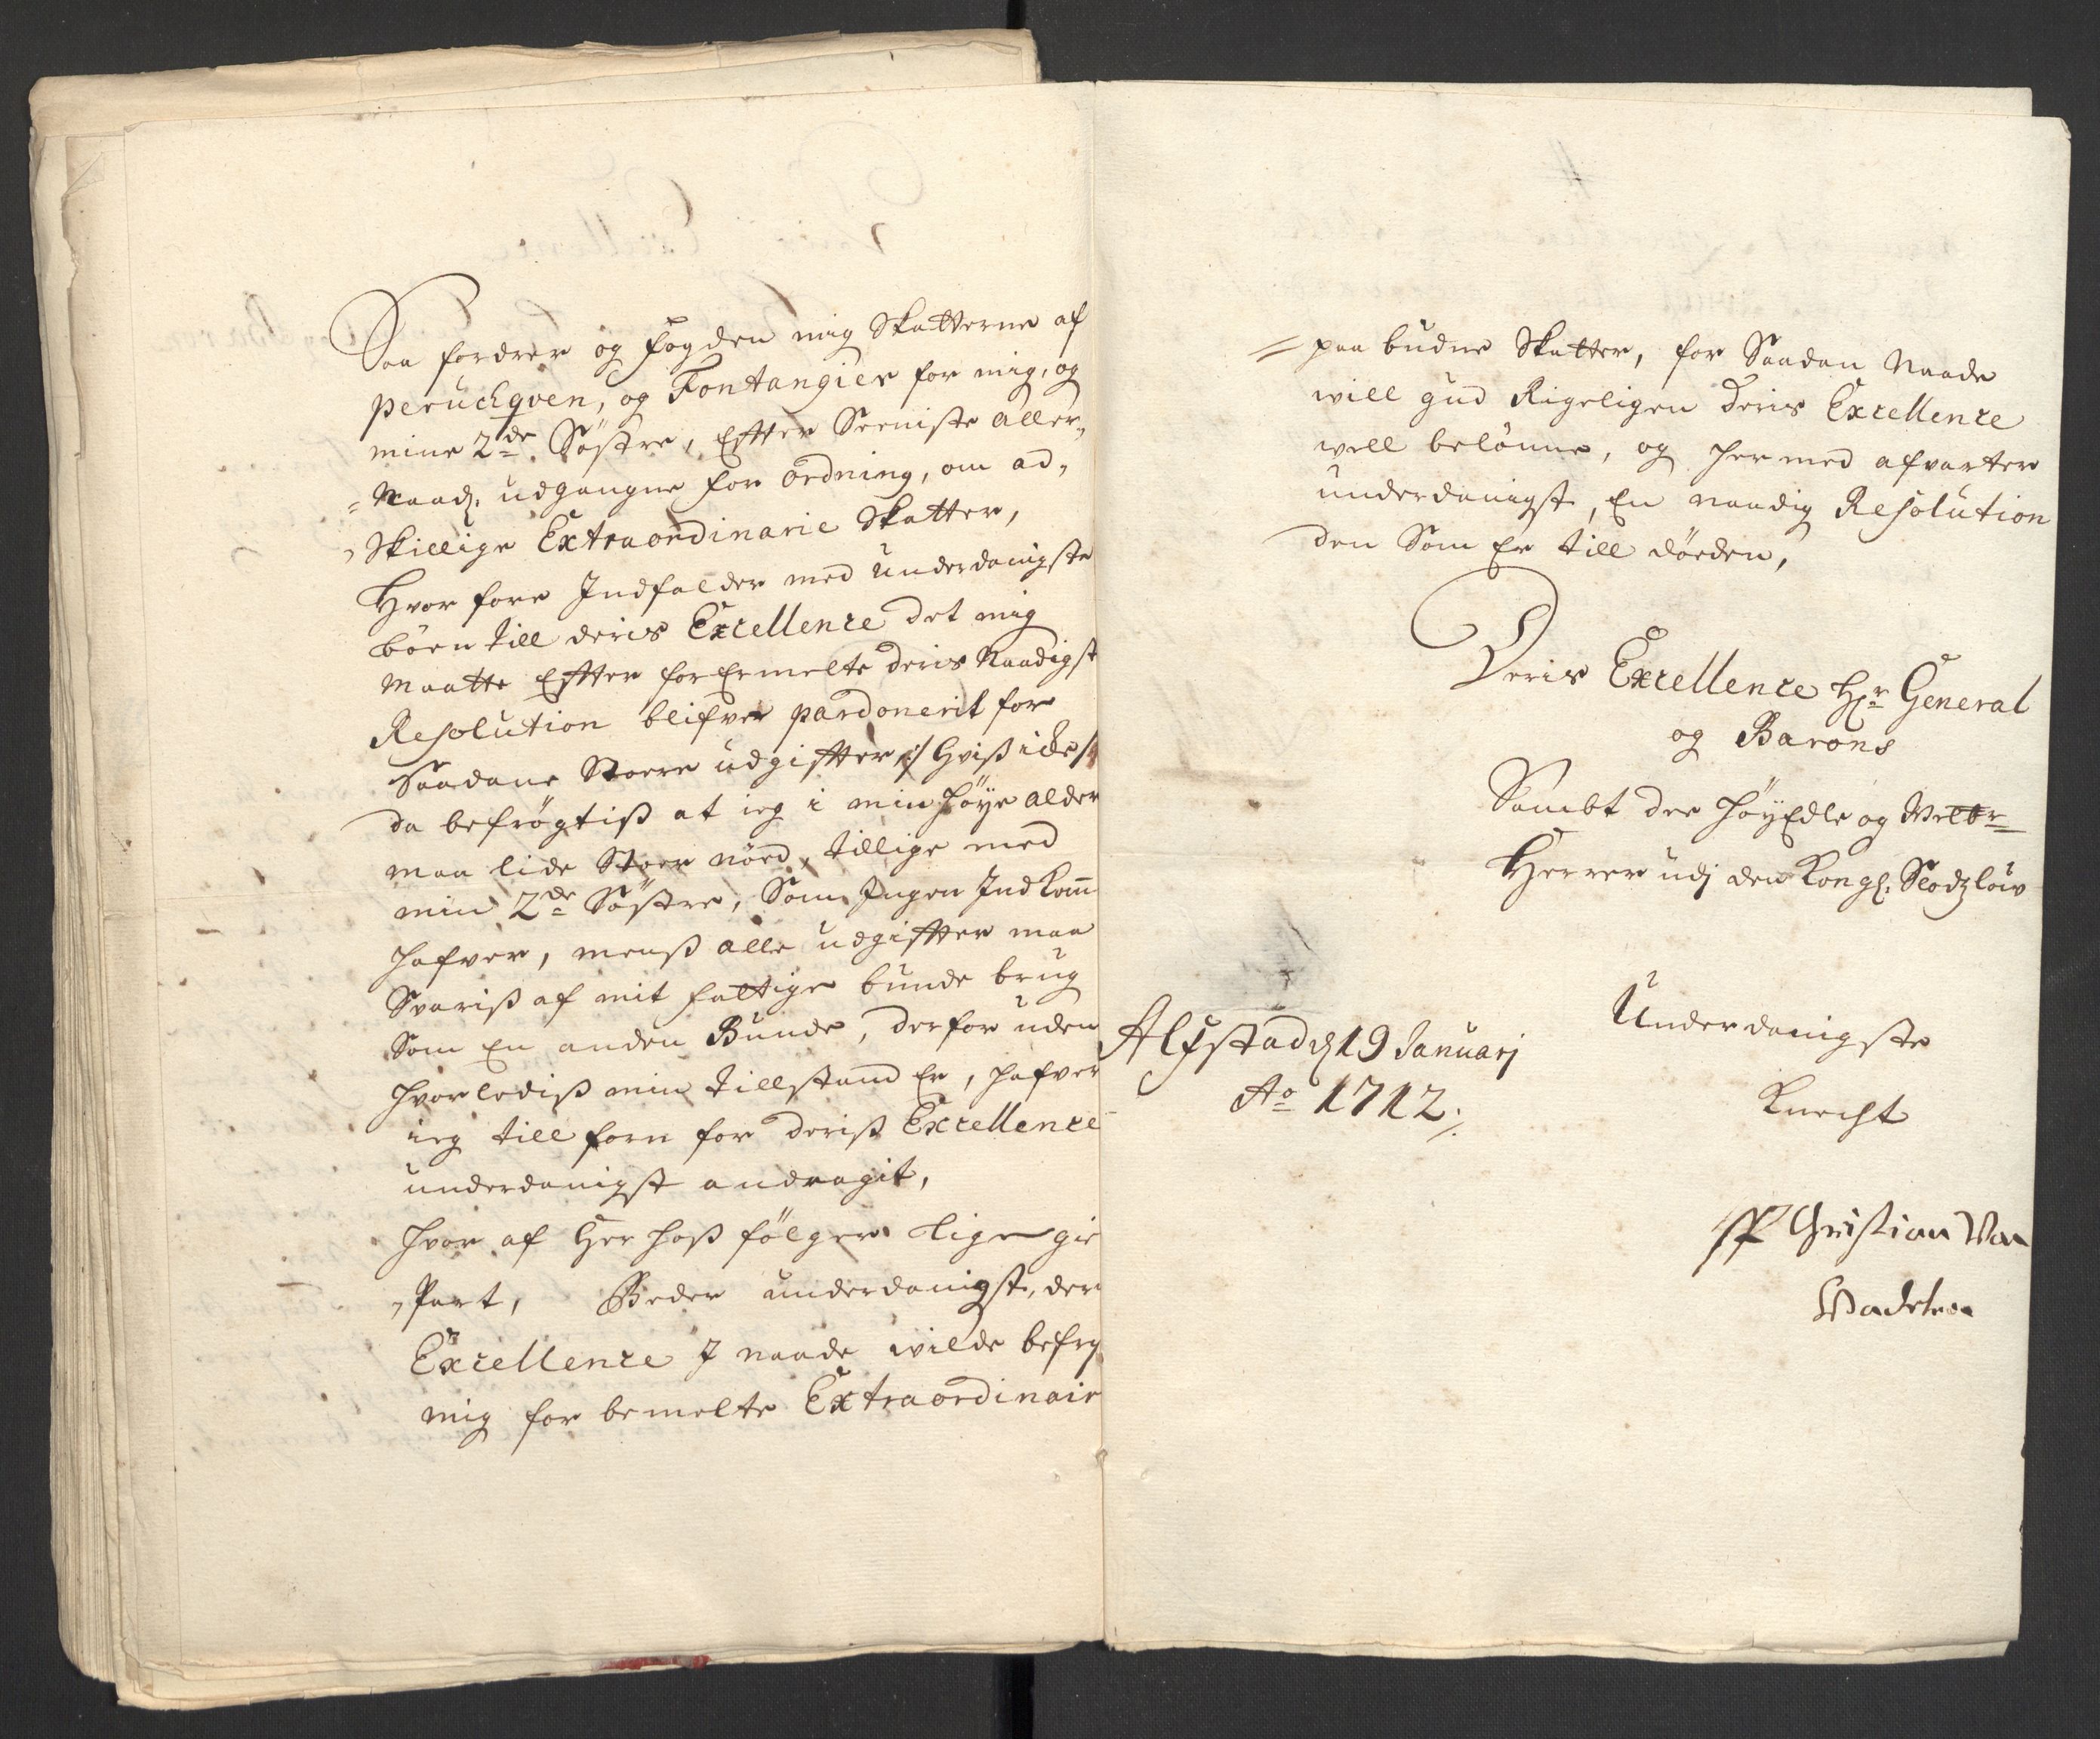 Saa fordrer og fogden mig Skatterne af
peruckqven, og Fontangier for mig, og
mine 2de Söstre, Efter Seeniste aller„
„Naad: udgangne for ordning, om ad„
„Skillige Extraordinarie Skatter,
Hvor fore Indfalder med underdanigste
böen till deris Excellence det mig
maatte Efter for Ermelte deris Naadigst
Resolution blifver pardonerit for
Saadane Storre udgifter :/ hviß icke /:
da befrögtiß at ieg i min höye alder
maa lide Stoer nöed, tillige med
min 2de Söstre, Som Ingen Indkom
hafver, menß alle udgifter maa
Svariß af mit fattige bunde brug
Som En anden Bunde, derfor uden
hvorlediß min tillstand Er, hafver
ieg till forn for deriß Excellence
underdanigst andragit,
hvor af Her hoß fölger lige gie
„Part, Beder underdanigst, der
Excellence I naade wilde befry
mig for bemelte Extraordinair
= paa budne Skatter, for Saadan Naade
will gud Rigeligen deris Excellence
well belönne, og her med afvarter
underdanigst, En naadig Resolution
den Som Er till döeden,
Deris Excellence Hr General
og Barons
Sambt dee höyEdle og Velbr=
Herrer udj den Kongl: Slodzlow
Underdanigste
Knecht
Alfstad d 19 Januarj
Ao 1712 ./.
Christian Von